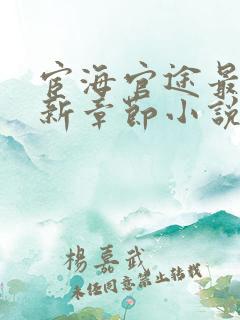 宦海官途最
新章節小說
楊嘉武
未經同意禁止轉載